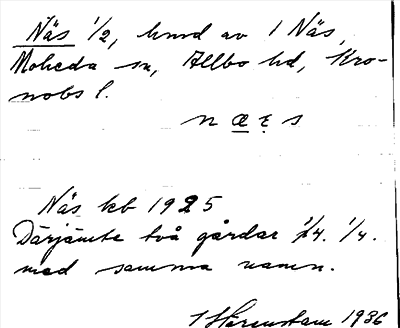 Näs 1/2, hmd av 1 Näs,
Moheda sn, Allbo hd, Kro-
nobs l.
n æ ȩ s
Näs kb 1925
Därjämte två gårdar 1/4. 1/4.
med samma namn.
Harenstam 1936